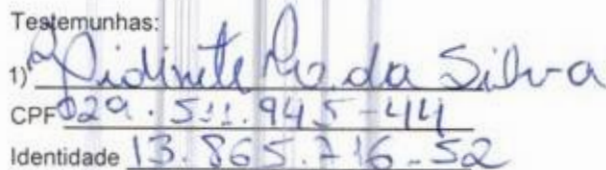 Testemunhas:
1) da Silva
CPF 029.511.945-44
Identidade 13.865.716-52